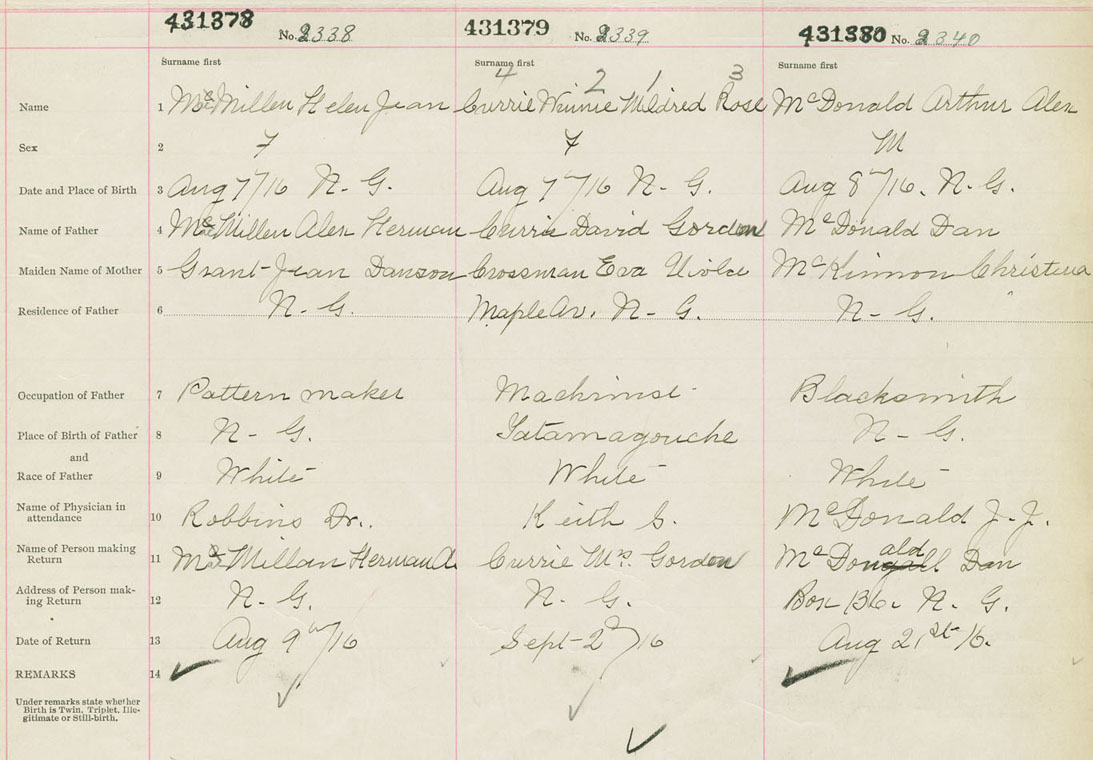 431378 No. 2338 431379 No. 2339 431380 No. 2340
Surname first Surname first Surname first
4 2 1 3
Name 1 McMillen Helen Jean Currie Winnie Mildred Rose McDonald Arthur Alex
Sex 2 F F M
Date and Place of Birth 3 Aug 7/16 N-G. Aug 7th/16 N-G. Aug 8th/16. N-G.
Name of Father 4 McMillen Alex Herman Currie David Gordon McDonald Dan
Maiden Name of Mother 5 Grant Jean Dawson Crossman Eva McKinnon Christena
Residence of Father 6 N-G. Maple Av. N-G. N-G.
Occupation of Father 7 Pattern maker Machinist Blacksmith
Place of Birth of Father 8 N-G. Tatamagouche N-G.
and
Race of Father 9 White White White
Name of Physician in
attendance 10 Robbins Dr. Keith G. McDonald J.J.
Name of Person making
Return 11 McMillan Herman A. Currie Mrs. Gorden McDonald Dan
Address of Person mak-
ing Return 12 N-G. N-G. Box 136. N.G.
Date of Return 13 Aug 9th/16 Sept-2d/16 Aug 21st/16.
REMARKS 14
Under remarks state whether
Birth is Twin, Triplet, Ille-
gitimate or Still-birth.